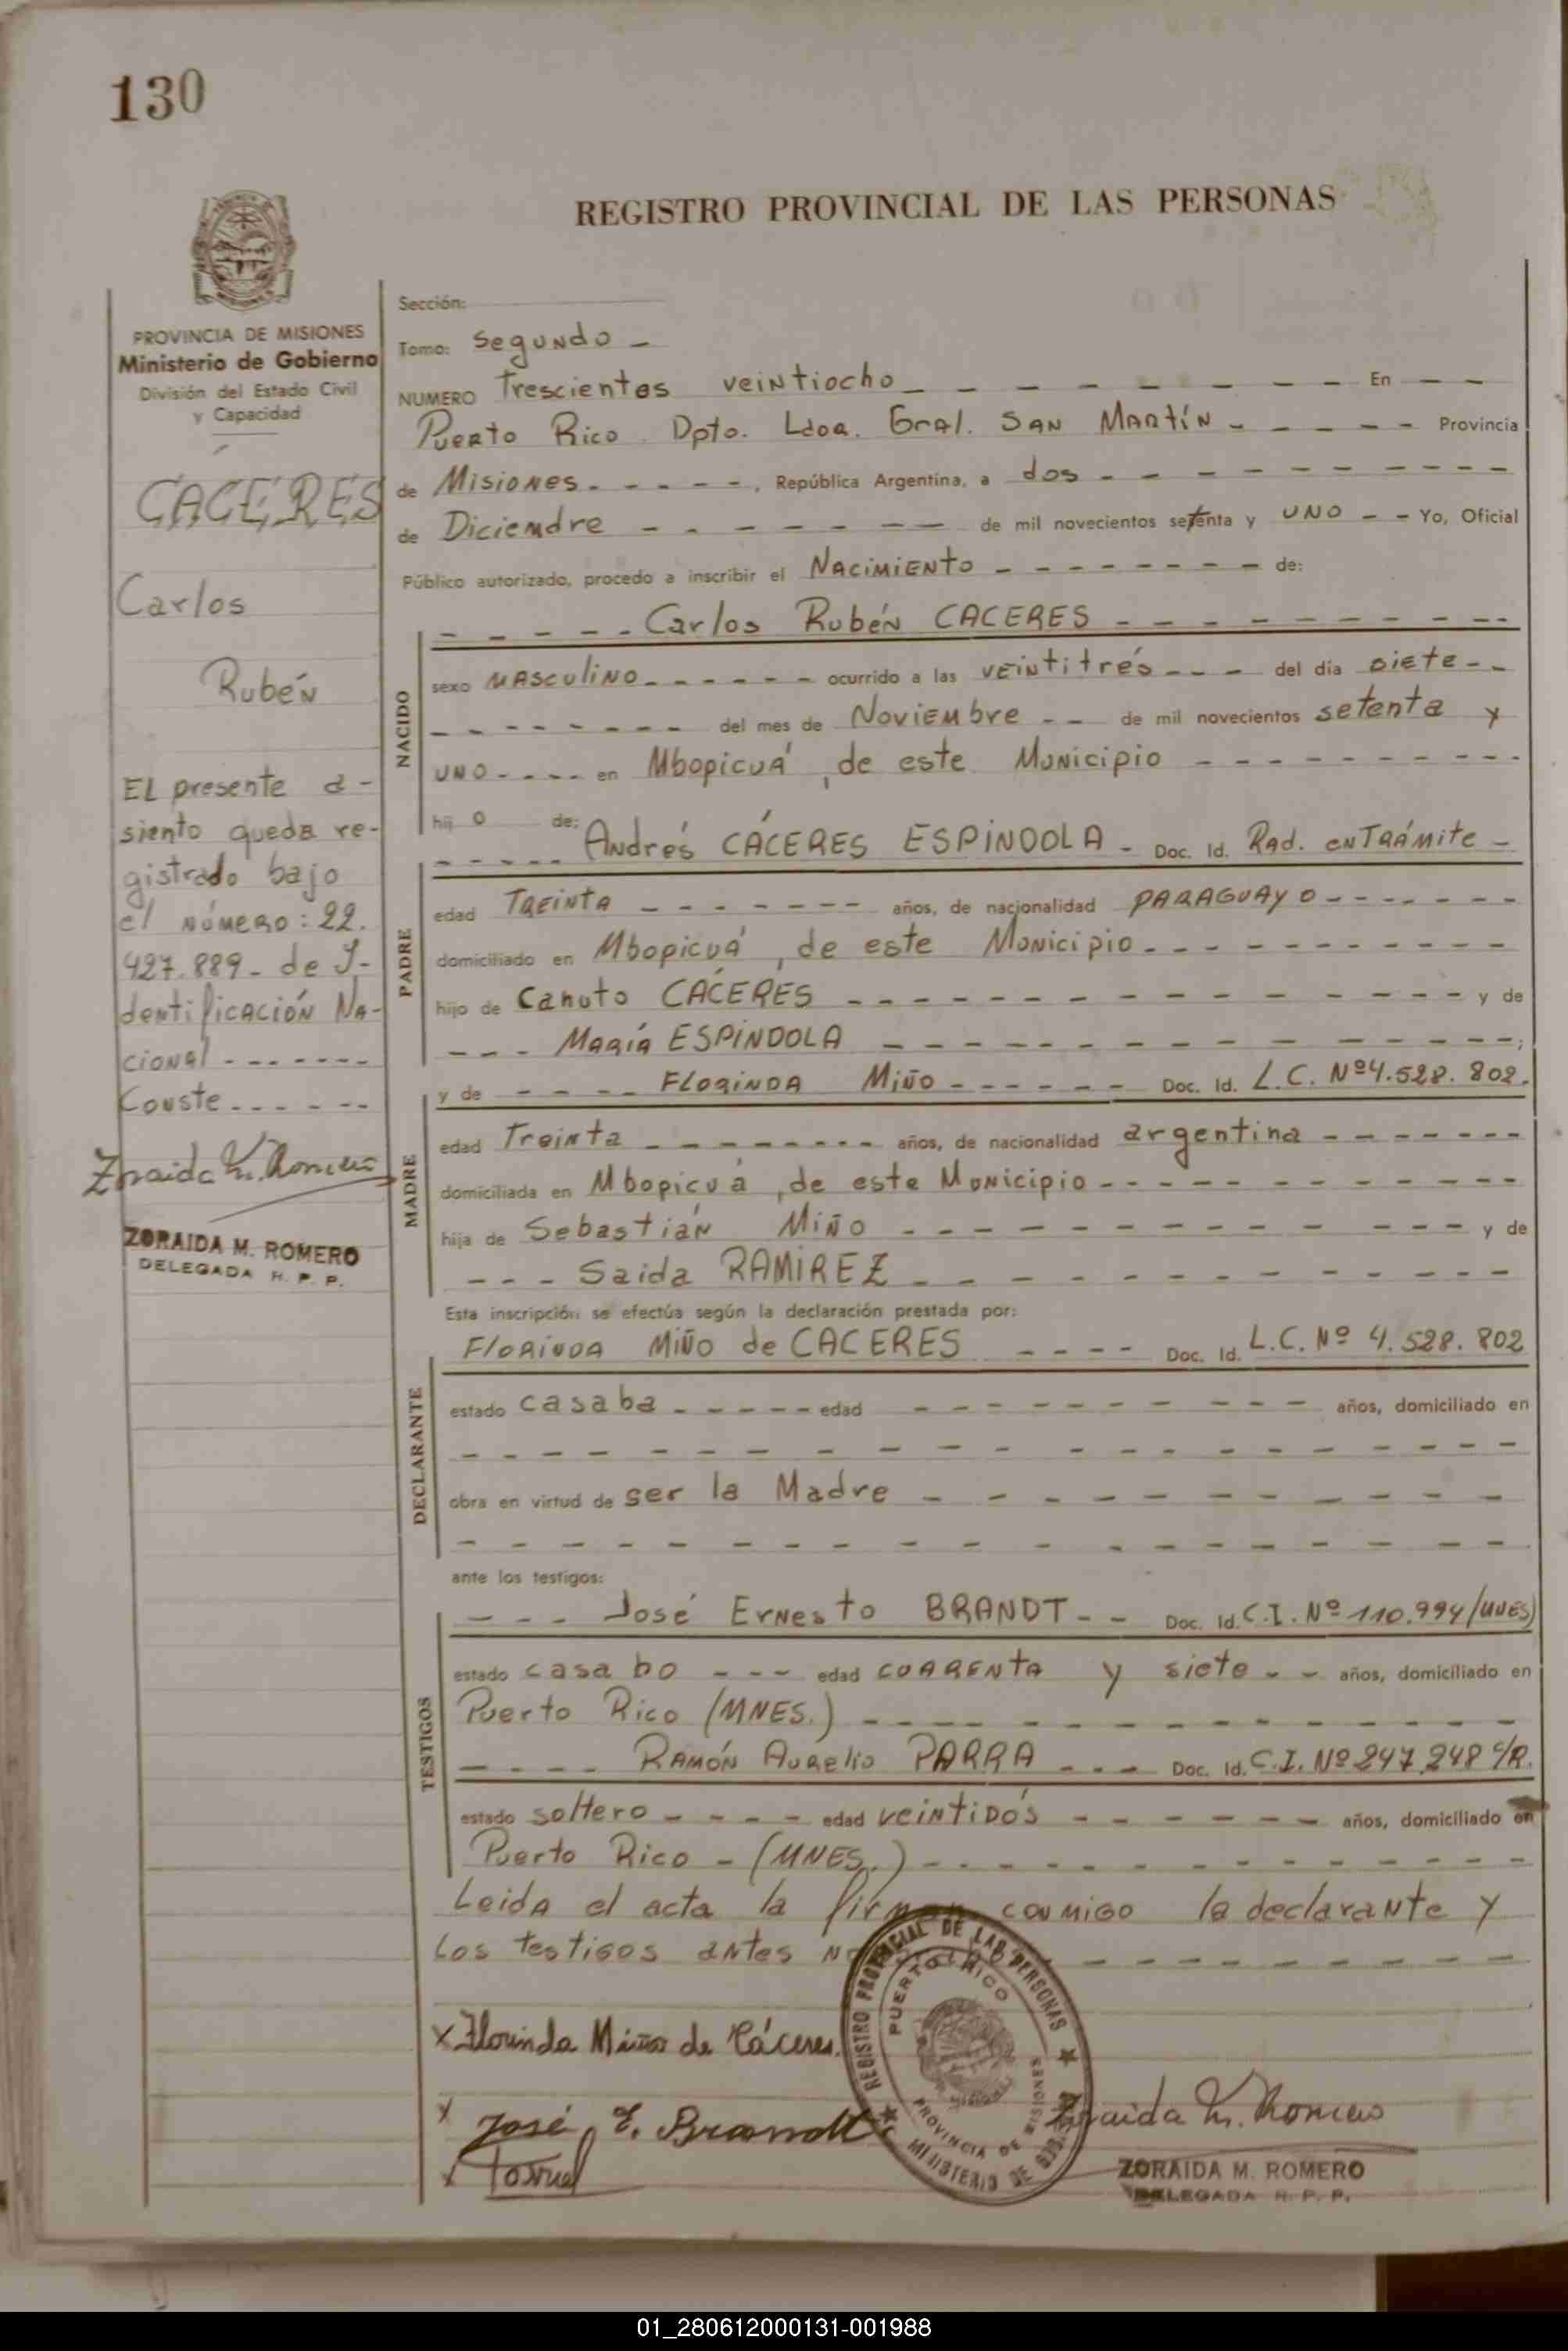 130
REGISTRO PROVINCIAL DE LAS PERSONAS
PROVINCIA DE MISIONES
Ministerio de Gobierno
División del Estado Civil
y Capacidad
CACERES
Carlos
Rubén
El presente a-
siento queda re-
gistrado bajo
el número: 22.
427.889- de I-
dentificación Na-
cional - - - - - - -
Conste - - - - - -
Zoraida M. Romero
ZORAIDA M. ROMERO
DELEGADA R. P. P.
Sección:
Tomo: Segundo -
NUMERO Trescientos veintiocho - - - - - - - - - En - -
Puerto Rico Dpto. Ldor. Gral. San Martín - - - - - Provincia
de Misiones - - - - -, República Argentina, a dos - - - - - - - - - -
de Diciembre - - - - - - - - de mil novecientos setenta y uno - - Yo, Oficial
Público autorizado, procedo a inscribir el Nacimiento - - - - - - - - de:
NACIDO
- - - - - Carlos Rubén CACERES - - - - - - - - - -
sexo masculino - - - - - - ocurrido a las veintitrés - - - del día siete - -
- - - - - - - - del mes de Noviembre - - de mil novecientos setenta y
uno - - - - en Mbopicuá, de este Municipio - - - - - - - - -
hijo de:
PADRE
- - - - - Andrés CÁCERES ESPINDOLA - Doc. Id. Rad. en Trámite -
edad Treinta - - - - - - - años, de nacionalidad paraguayo - - - - - - -
domiciliado en Mbopicuá, de este Municipio - - - - - - - - - -
hijo de Canuto CÁCERES - - - - - - - - - - - - - y de
- - - María ESPINDOLA - - - - - - - - - - - - - ;
MADRE
y de - - - - Florinda Miño - - - - - - Doc. Id. L.C. Nº 4.528.802.
edad Treinta - - - - - - - - años, de nacionalidad argentina - - - - - - -
domiciliada en Mbopicuá, de este Municipio - - - - - - - - - - -
hija de Sebastián Miño - - - - - - - - - - - - y de
- - - Saida RAMIREZ - - - - - - - - - - - -
Esta inscripción se efectúa según la declaración prestada por:
DECLARANTE
Florinda Miño de CACERES - - - - Doc. Id. L.C. Nº 4.528.802
estado casada - - - - - edad - - - - - - - - - años, domiciliado en
- - - - - - - - - - - - - - - - - - -
obra en virtud de ser la Madre - - - - - - - - - - -
- - - - - - - - - - - - - - - - - - -
ante los testigos:
TESTIGOS
- - - José Ernesto BRANDT - - Doc. Id. C.I. Nº 110.994/MNES)
estado casado - - - edad cuarenta y siete - - años, domiciliado en
Puerto Rico (MNES.) - - - - - - - - - - - - -
- - - - Ramón Aurelio PARRA - - - Doc. Id. C.I. Nº 247.248 C/R.
estado soltero - - - - edad veintidós - - - - - - años, domiciliado en
Puerto Rico - (MNES.) - - - - - - - - - - - -
Leida el acta la firman conmigo la declarante y
los testigos antes - - - - - - - - -
REGISTRO PROVINCIAL DE LAS PERSONAS
PUERTO RICO
PROVINCIA DE MISIONES
MINISTERIO DE
x Florinda Miño de Cáceres.
x José E. Brandt
x
Zoraida M. Romero
ZORAIDA M. ROMERO
DELEGADA R. P. P.
01_280612000131-001988